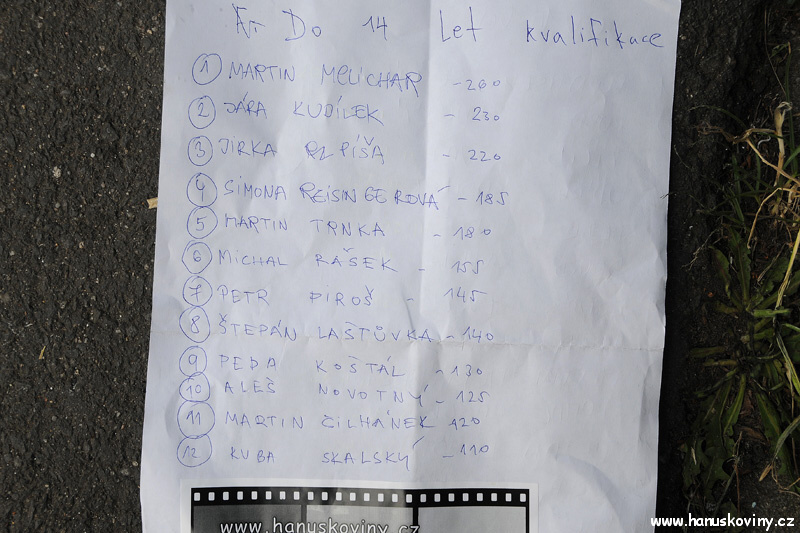 Do 14 Let kvalifikace
1 MARTIN MELICHAR - 260
2 JÁRA KUDÍLEK - 230
3 JIRKA RZPÍŠA - 220
4 SIMONA REISINGEROVÁ - 185
5 MARTIN TRNKA - 180
6 MICHAL RÁŠEK - 155
7 PETR PIROŠ - 145
8 ŠTEPÁN LAŠTŮVKA - 140
9 PEĎA KOŠTÁL - 130
10 ALEŠ NOVOTNÝ - 125
11 MARTIN ČILHÁNEK 120
12 KUBA SKALSKÝ - 110
www.hanuskoviny.cz
www.hanuskoviny.cz